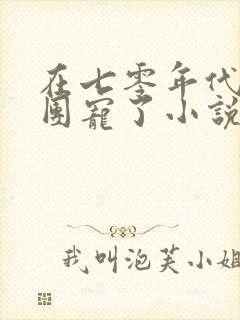 在七零年代
团宠了小説
我叫泡芙小姐